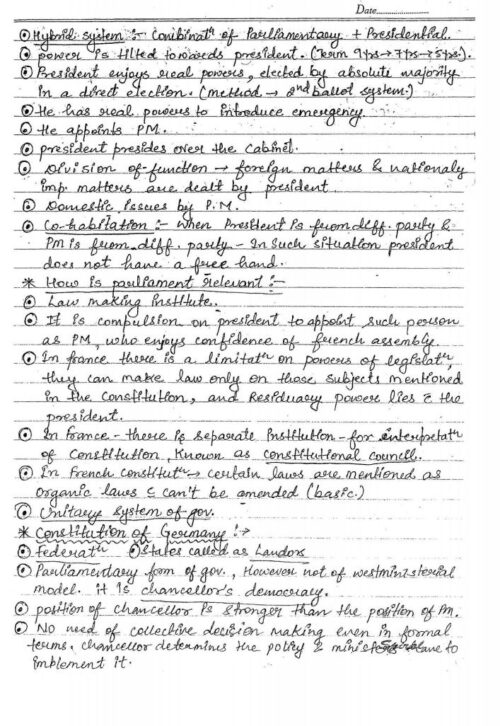 Date
Hybrid system :- Combinatn of Parliamentary + Presidential.
power is tilted towards president. (term 9yrs→7yrs→5yrs.).
President enjoys real powers, elected by absolute majority
in a direct election. (method → 2nd ballot system.)
He has real powers to introduce emergency.
He appoints PM.
president presides over the Cabinet.
Division of-function → foreign matters & nationaly
imp matters are dealt by president.
Domestic issues by P.M.
Co-habitation :- When President is from diff. party &
PM is from diff. party - In such situation president
does not have a free hand.
* How is parliament relevant :-
Law making institute.
It is compulsion on president to appoint such person
as PM, who enjoys confidence of french assembly.
In france there is a limitatn on powers of legislatr,
they can make law only on those subjects mentioned
in the constitution, and Residuary power lies c the
president.
In france - there is separate institution - for interpretatn
of Constitution, known as constitutional council.
In French constitutn → certain laws are mentioned as
organic laws c can't be amended (basic.)
Unitary system of gov.
* Constitution of Germany :→
Federatn States called as Landors
Parliamentary form of gov., However not of westministerial
model. it is chancellor's democracy.
position of chancellor is stronger than the position of PM.
No need of collective decision making even in formal
terms. chancellor determines the policy & have to
implement it.